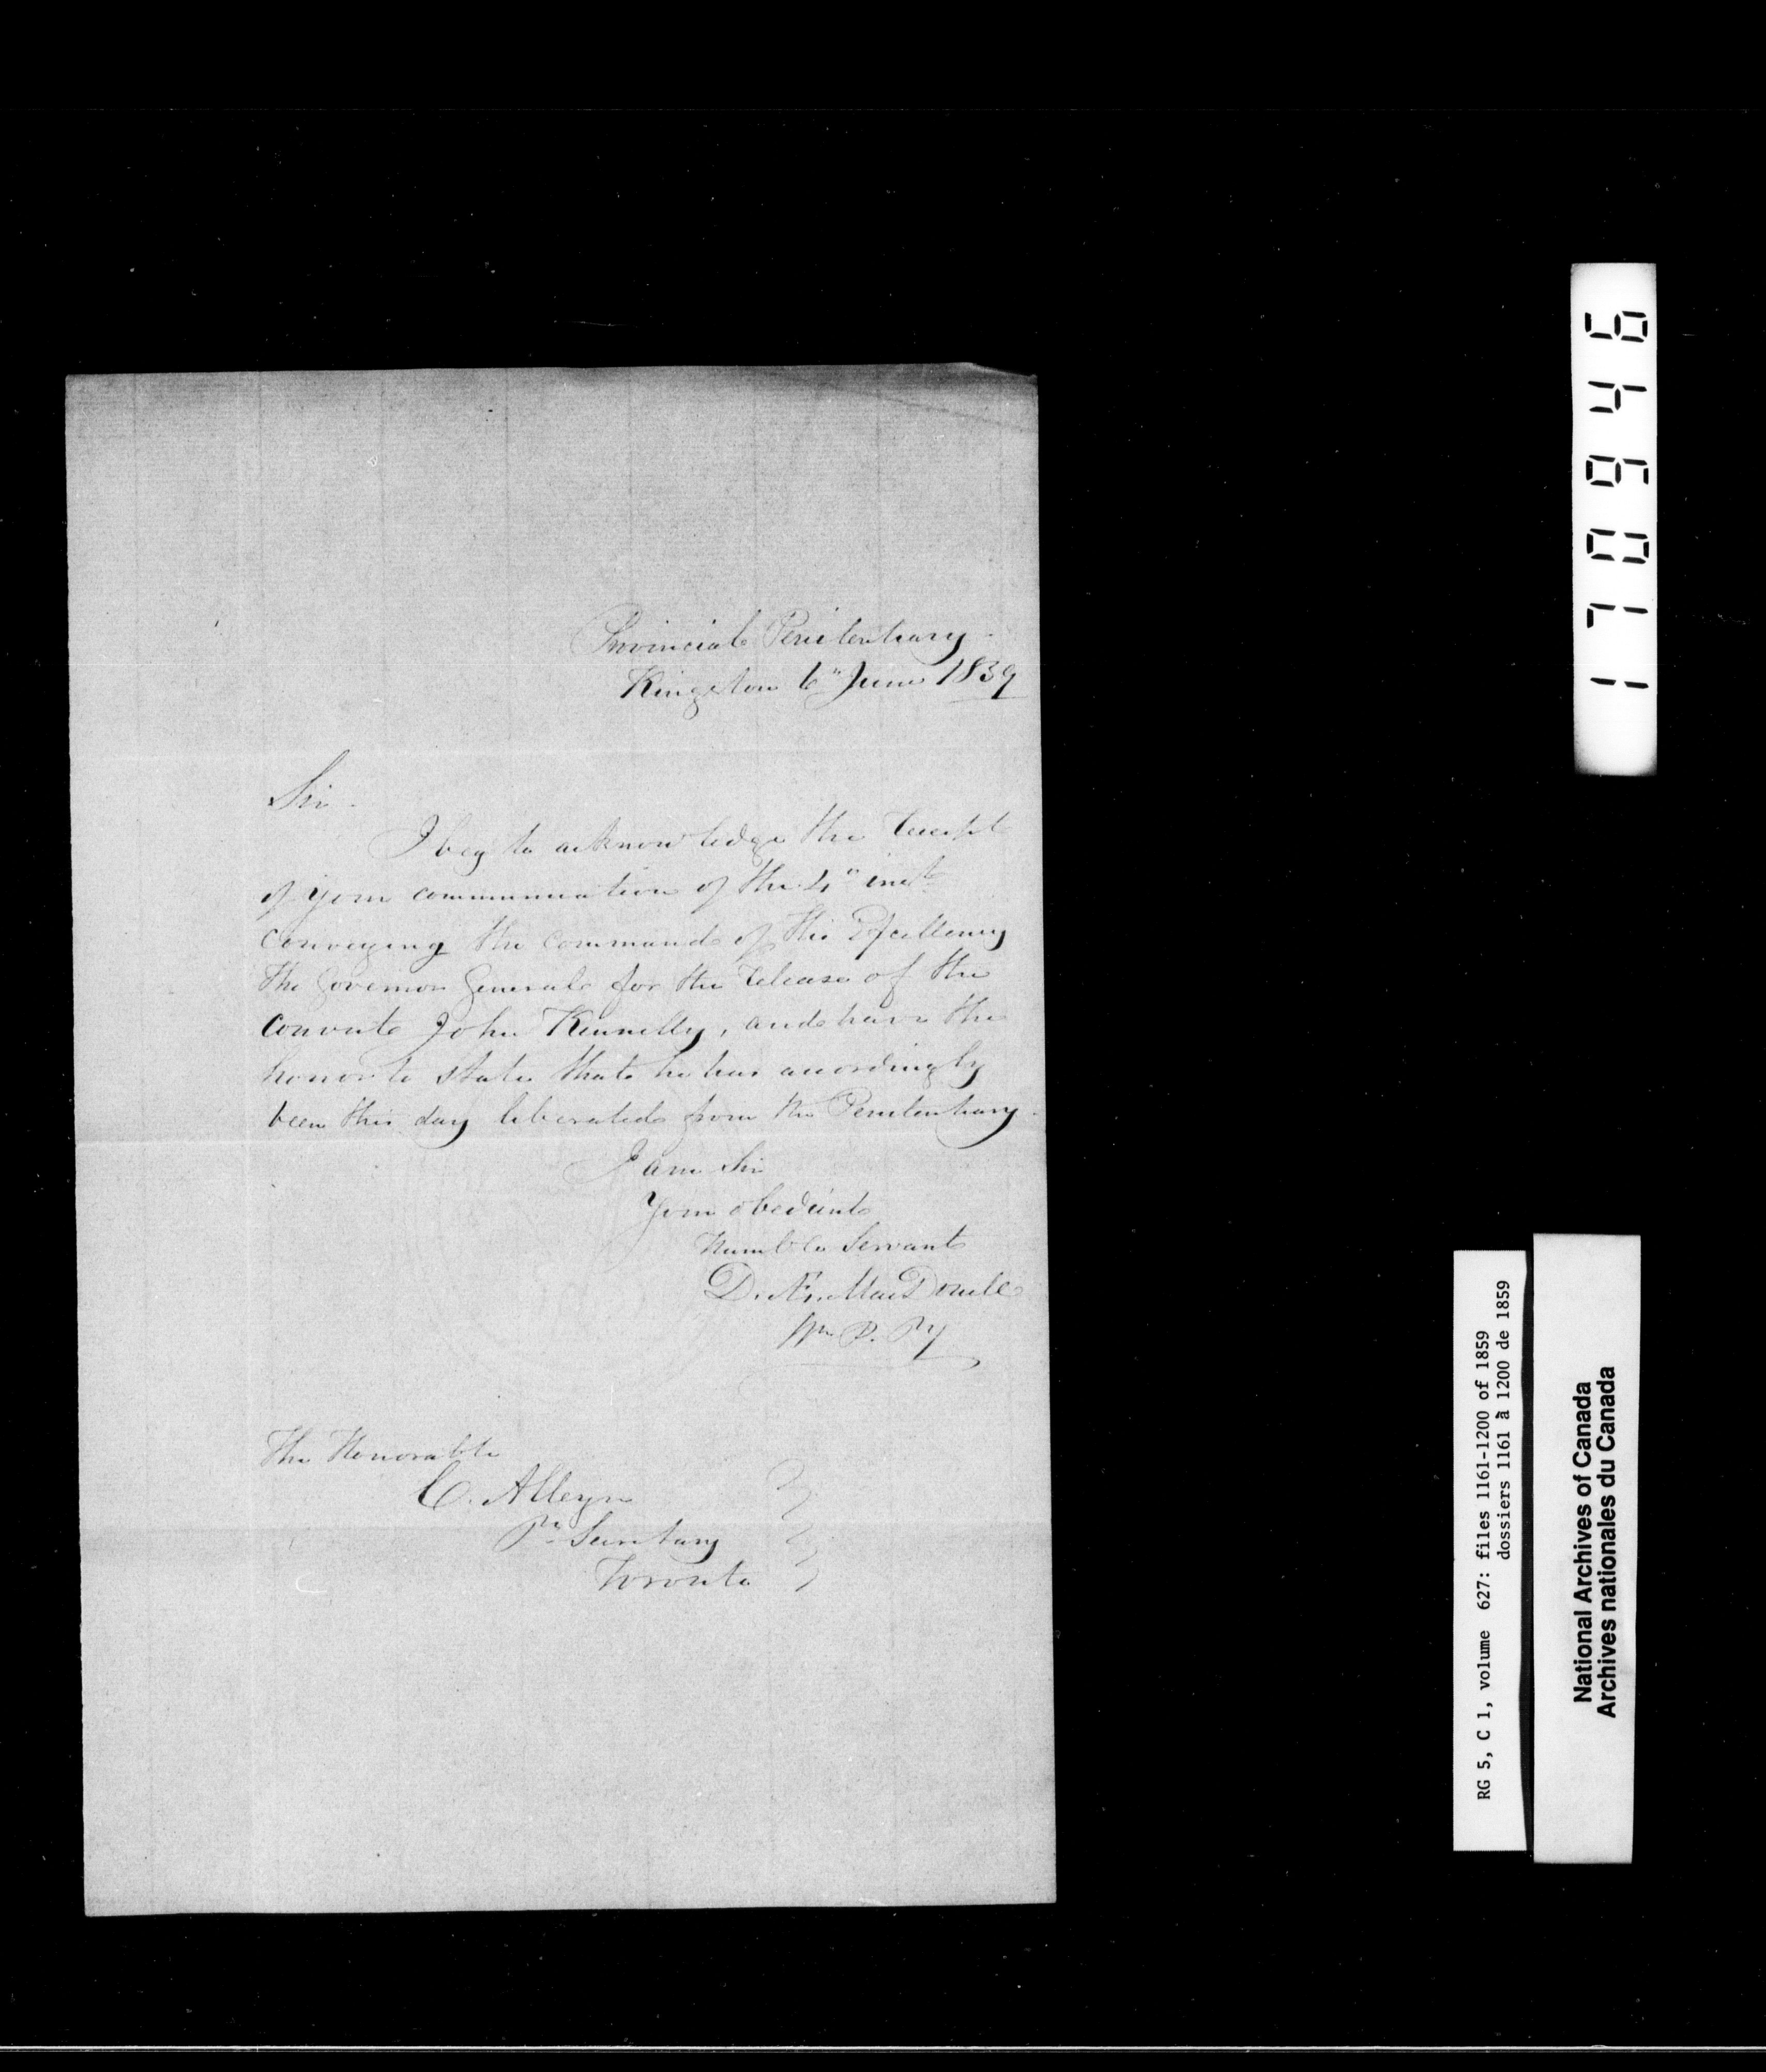 Provincial Penitentiary
Kingston 6" June 1859
Sir
I beg to acknowledge the receipt
of your communication of the 4" inst
conveying the command of His Excellency
The Governor General for the release of the
Convict John Kennelly, and have the
honor to state that he has accordingly
been this day liberated from the Penitentiary.
I am Sir
Your obedient
Humble Servant
D. Æ. MacDonell
Wn P. Py
The Honorable
C. Alleyn
Pl Secretary
Toronto
170946
RG 5, C 1, volume 627: files 1161-1200 of 1859
dossiers 1161 à 1200 de 1859
National Archives of Canada
Archives nationales du Canada